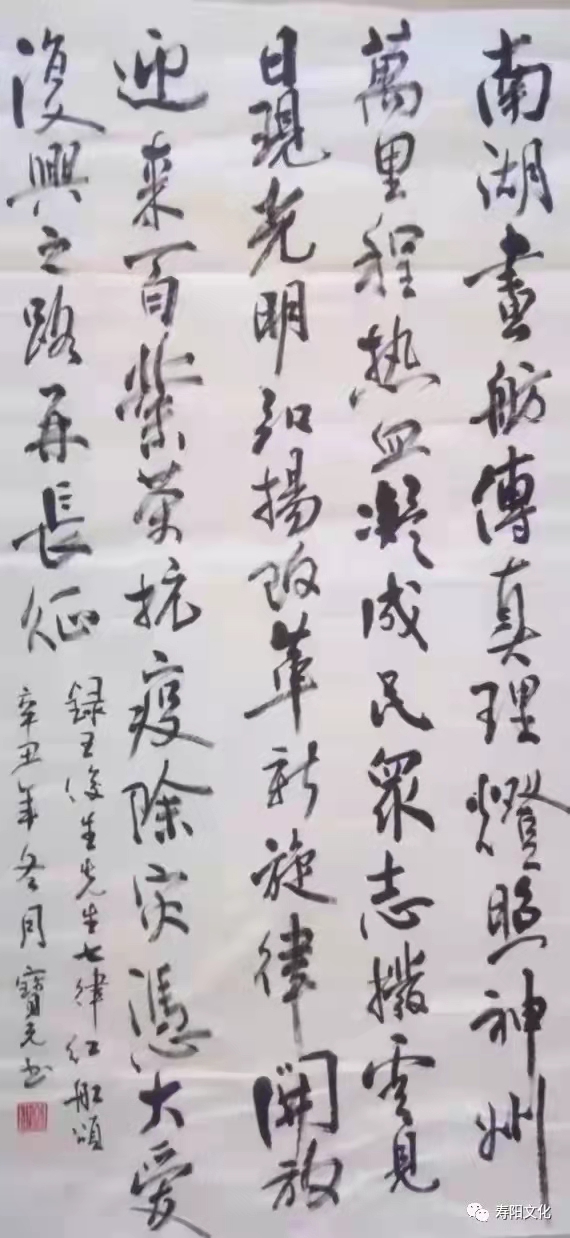 南湖畫舫傳真理燈照神州
萬里程热血凝成民眾志撥雲見
日現光明弘揚改革新旋律開放
迎来百業荣抗疫除災憑大爱
復興之路再長征
録王俊生先生七律红船頌
辛丑年冬月寶元书
寿阳文化